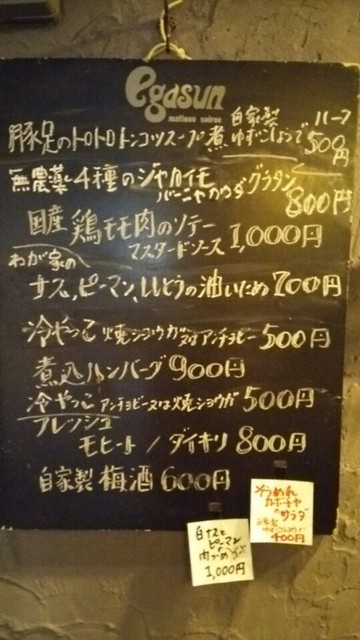 egasun
matinee soiree
自家製 ハーフ
豚足のトロトロトンコツスープ煮 ゆずこしょうで 500円
無農薬4種のジャガイモ グラタン
バーニャカウダ 800円
国産鶏モモ肉のソテー
マスタードソース 1,000円
わが家の
ナス,ピーマン,ししとうの油いため 700円
冷やっこ 焼ショウガ又はアンチョビー 500円
煮込ハンバーグ 900円
冷やっこ アンチョビー又は焼ショウガ 500円
フレッシュ
モヒート / ダイキリ 800円
自家製 梅酒 600円
そうめん
カボチャ
サラダ
400円
白ナスと
ピーマン
肉づめ
1,000円